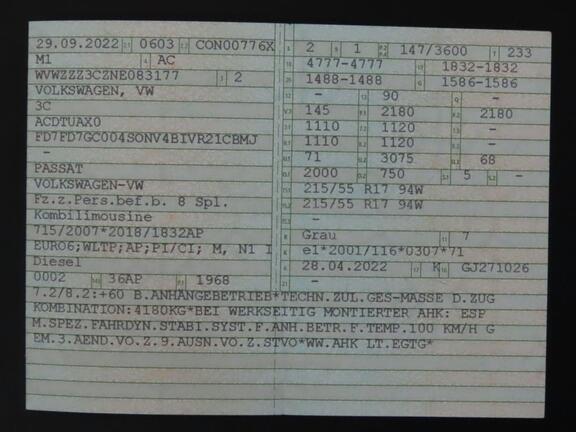 29.09.2022 2.1 0603 2.2 CON00776X
M1 4 AC
WVWZZZ3CZNE083177 3 2
VOLKSWAGEN, VW
3C
ACDTUAX0
FD7FD7GC004SONV4BIVR21CBMJ
-
PASSAT
VOLKSWAGEN-VW
Fz.z.Pers.bef.b. 8 Spl.
Kombilimousine
715/2007*2018/1832AP
EURO6;WLTP;AP;PI/CI; M, N1 I
Diesel
0002 36AP 1968
2 9 1 147/3600 T 233
18 4777-4777 19 1832-1832
20 1488-1488 G 1586-1586
- 13 90 Q -
145 2180 2180
1110 1120 -
1110 1120 -
71 3075 68
2000 750 5 -
215/55 R17 94W
215/55 R17 94W
-
R Grau 11 7
K e1*2001/116*0307*71
6 28.04.2022 17 K 16 GJ271026
21 -
7.2/8.2:+60 B.ANHÄNGEBETRIEB*TECHN.ZUL.GES-MASSE D.ZUG
KOMBINATION:4180KG*BEI WERKSEITIG MONTIERTER AHK: ESP
M.SPEZ.FAHRDYN.STABI.SYST.F.ANH.BETR.F.TEMP.100 KM/H G
EM.3.AEND.VO.Z.9.AUSN.VO.Z.STVO*WW.AHK LT.EGTG*